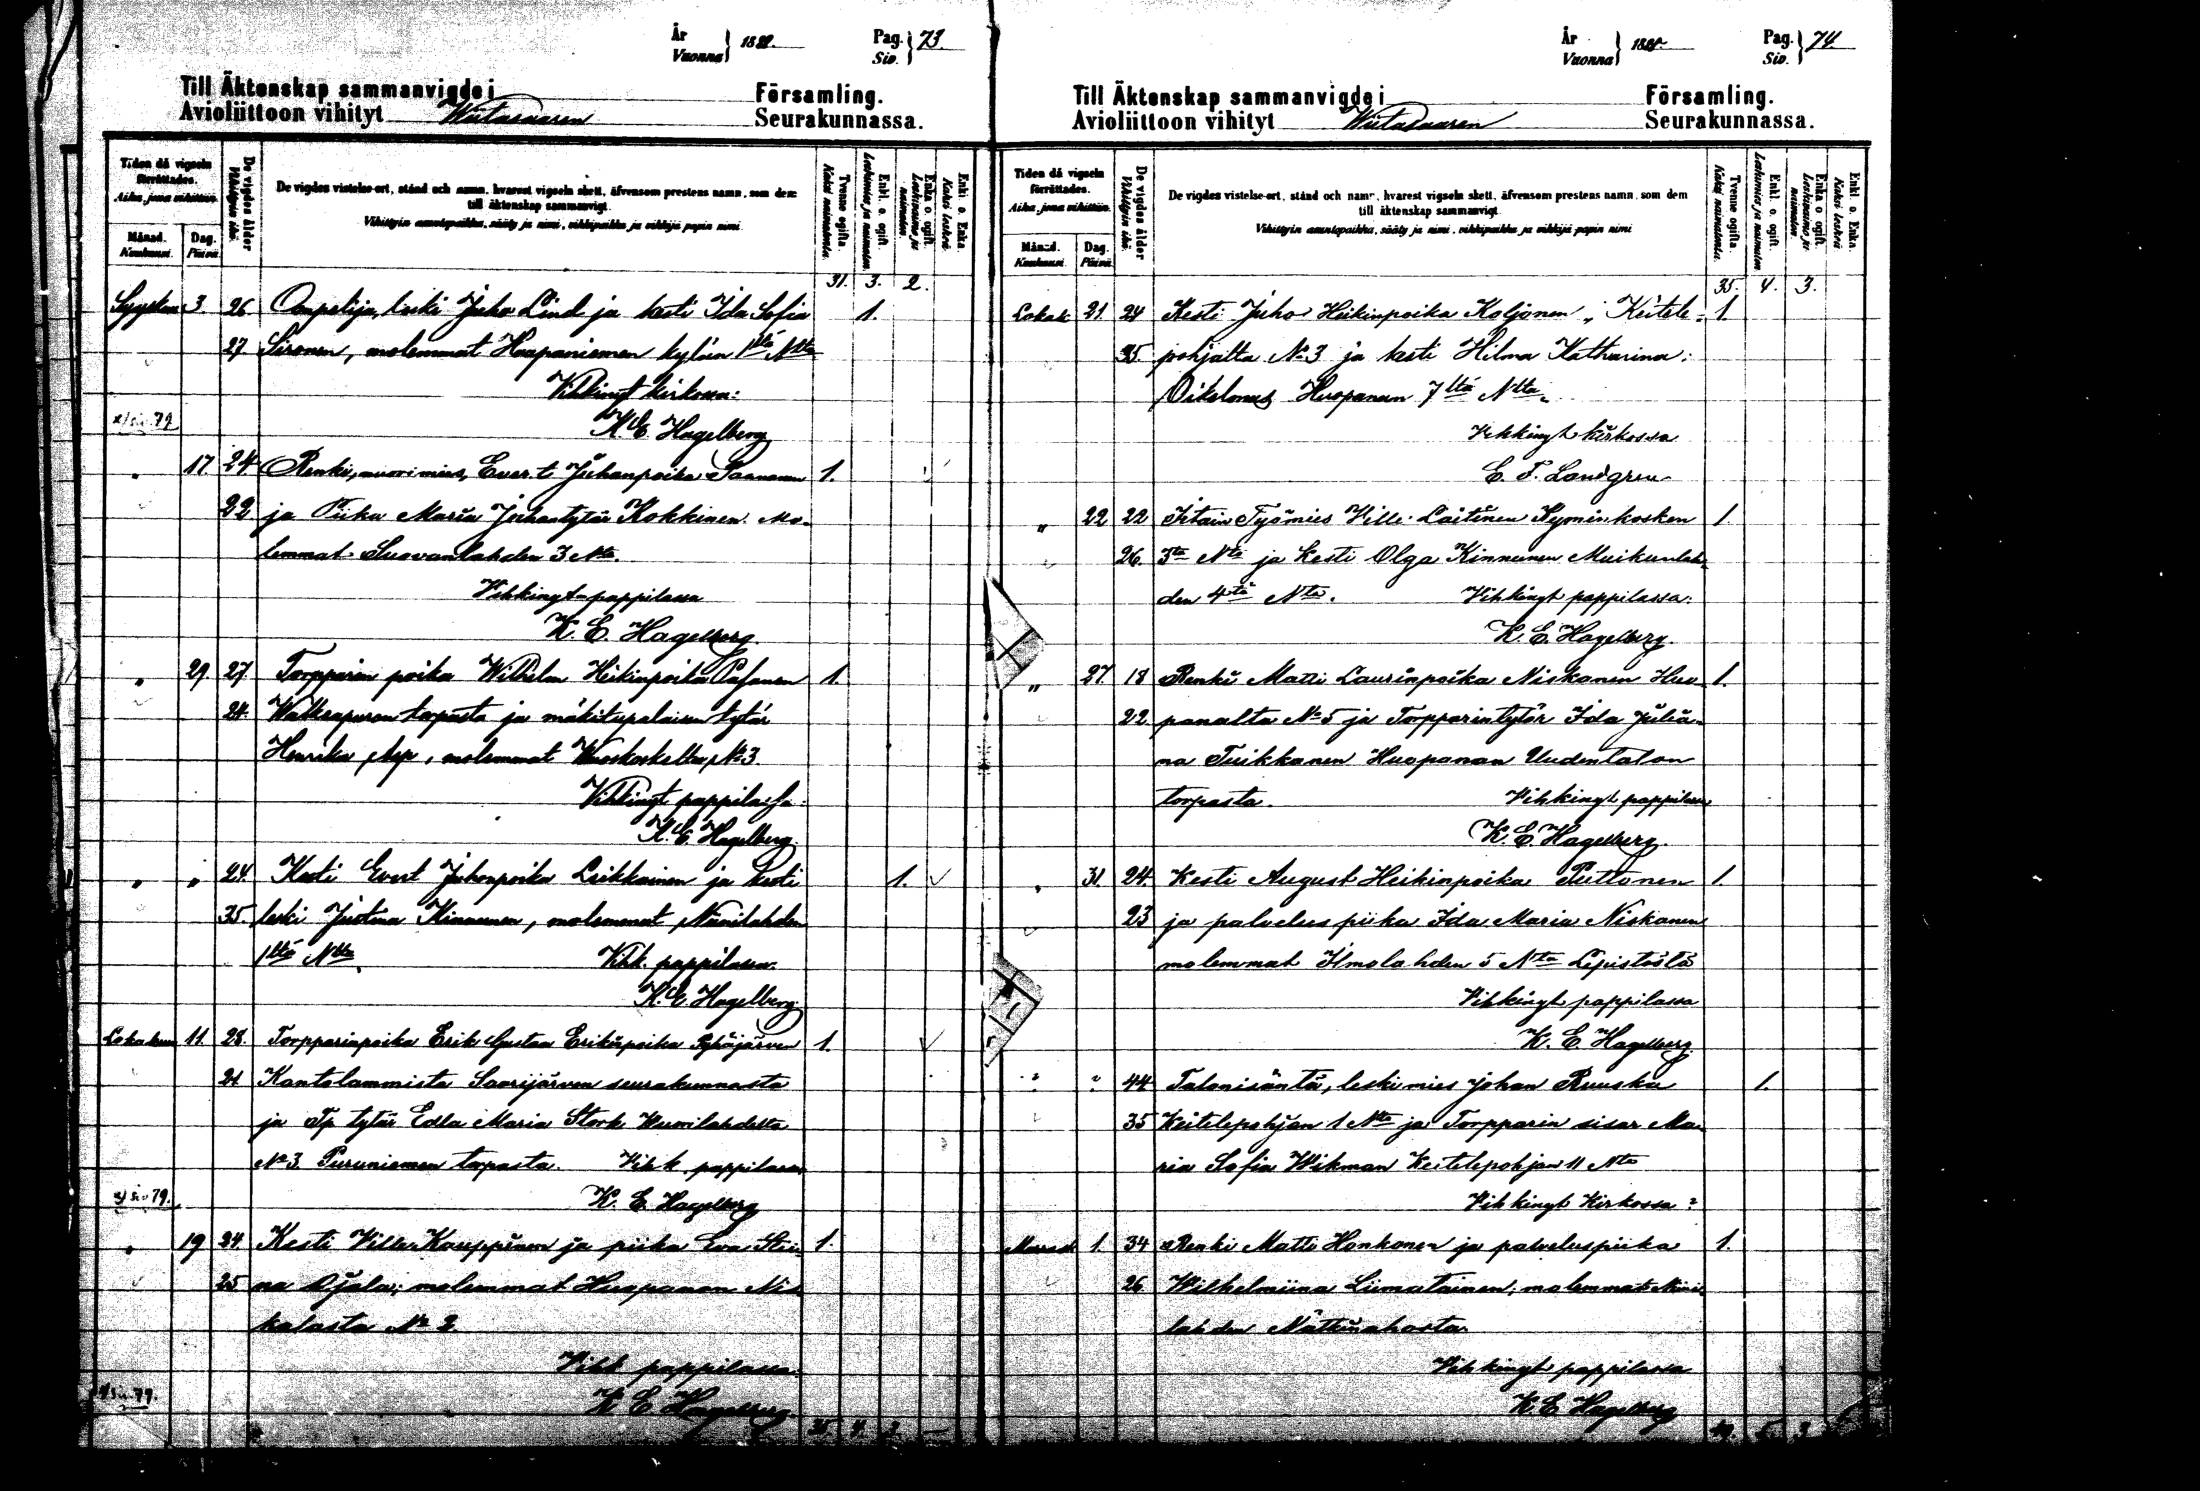 År
Vuonna } 188
Pag.
Siv. } 73.
Till Äktenskap sammanvigde i Församling.
Avioliittoon vihityt Wiitasaaren Seurakunnassa.
Tiden då vigseln förrättades.
Aika, jona vihittiin.
Månad. Kuukausi.
Dag. Päivä.
De vigdes ålder
Vihittyin ikä.
De vigdes vistelse-ort, stånd och namn, hvarest vigseln skett, äfvensom prestens namn, som dem
till äktenskap sammanvigt.
Vihittyin asuntopaikka, sääty ja nimi, vihkipaikka ja vihkijä papin nimi
Tvenne ogifta
Kaksi naimatonta.
Enkl. o. ogift.
Leskimies ja naimaton
Enka o. ogift.
Leskivaimo ja naimaton
Enkl. o. Enka.
Kaksi leskeä
31. 3. 2.
Syyskuu 3. 26 Ompelija, leski Juho Lind ja kesti Ida Sofia 1.
27 Sironen, molemmat Haapaniemen kylän 1ltä Nlta
Vihkinyt kirkossa:
x/ siv. 79 K. E. Hagelberg
" 17 24 Renki, nuori mies, Evert Juhanpoika Paananen 1.
22 ja Piika Maria Juhantytär Kokkinen. Mo-
lemmat Suovanlahden 3 Nta.
Vihkinyt pappilassa
K. E. Hagelberg.
" 29 27. Torpparin poika Wilhelm Heikinpoika Pasanen 1.
24. torpasta ja mäkitupalaisen tytär
Henrika Asp, molemmat Wuoskoskelta No 3.
Vihkinyt pappilassa.
K. E. Hagelberg.
" " 24. Kesti Evert Juhonpoika Leikkainen ja kesti 1.
35. leski Justina Kinnunen, molemmat Niinilahden
1ltä Nlta Vihk. pappilassa.
K. E. Hagelberg.
Lokakuu 11. 28. Torpparinpoika Erik Gustaa Erikinpoika Pyhäjärven 1.
21 Kantolammista Saarijärven seurakunnasta
ja Tp. tytär Edla Maria Stork Wuorilahdesta
No 3. Puruniemen torpasta. Vihk. pappilassa
x/ siv 79. K. E. Hagelberg
" 19 24. Kesti Ville Kauppinen ja piika Eva Stii- 1.
25 na Ojala; molemmat Huopanan Nis
kalasta No 2.
Vihk. pappilassa.
x/ siv. 79. K. E. Hagelberg.
35. 4. 3. —
År
Vuonna } 188
Pag.
Siv. } 74.
Till Äktenskap sammanvigde i Församling.
Avioliittoon vihityt Wiitasaaren Seurakunnassa.
Tiden då vigseln förrättades.
Aika, jona vihittiin.
Månad. Kuukausi.
Dag. Päivä.
De vigdes ålder
Vihittyin ikä.
De vigdes vistelse-ort, stånd och namn, hvarest vigseln skett, äfvensom prestens namn, som dem
till äktenskap sammanvigt
Vihittyin asuntopaikka, sääty ja nimi, vihkipaikka ja vihkijä papin nimi
Tvenne ogifta.
Kaksi naimatonta.
Enkl. o. ogift.
Leskimies ja naimaton
Enka o. ogift.
Leskivaimo ja naimaton
Enkl. o. Enka.
Kaksi leskeä
35. 4. 3.
Lokak 21. 24 Kesti Juho Heikinpoika Koljonen, Keitele- 1.
35 pohjalta No 3 ja kesti Hilma Katharina
Oikolonus Huopanan 7ltä Nlta.
Vihkinyt kirkossa
E. F. Landgren
" 22 22 Itain Työmies Ville Laitinen Kyminkosken 1.
26. 3ta Nta ja Kesti Olga Kinnunen Muikunlah-
den 4tä Nta. Vihkinyt pappilassa:
K. E. Hagelberg.
" 27. 18 Renki Matti Laurinpoika Niskanen Huo- 1.
22. panalta No 5 ja Torpparintytär Ida Julia-
na Tuikkanen Huopanan Uudentalon
torpasta. Vihkinyt pappilassa
K. E. Hagelberg.
" 31. 24. Kesti August Heikinpoika Puttonen 1.
23 ja palveluspiika Ida Maria Niskanen
molemmat Ilmolahden 5 Nta Lepistöltä
Vihkinyt pappilassa
K. E. Hagelberg.
" " 44 Talonisäntä, leskimies Johan Ruuska 1.
35 Keitelepohjan 1 Nta ja Torpparin sisar Ma-
ria Sofia Wikman Keitelepohjan 11 Nta
Vihkinyt Kirkossa
Marrask 1. 34 Renki Matti Honkonen ja palveluspiika 1.
26 Wilhelmiina Liimatainen; molemmat Niini-
lahden
Vihkinyt pappilassa
K. E. Hagelberg
5. 3.